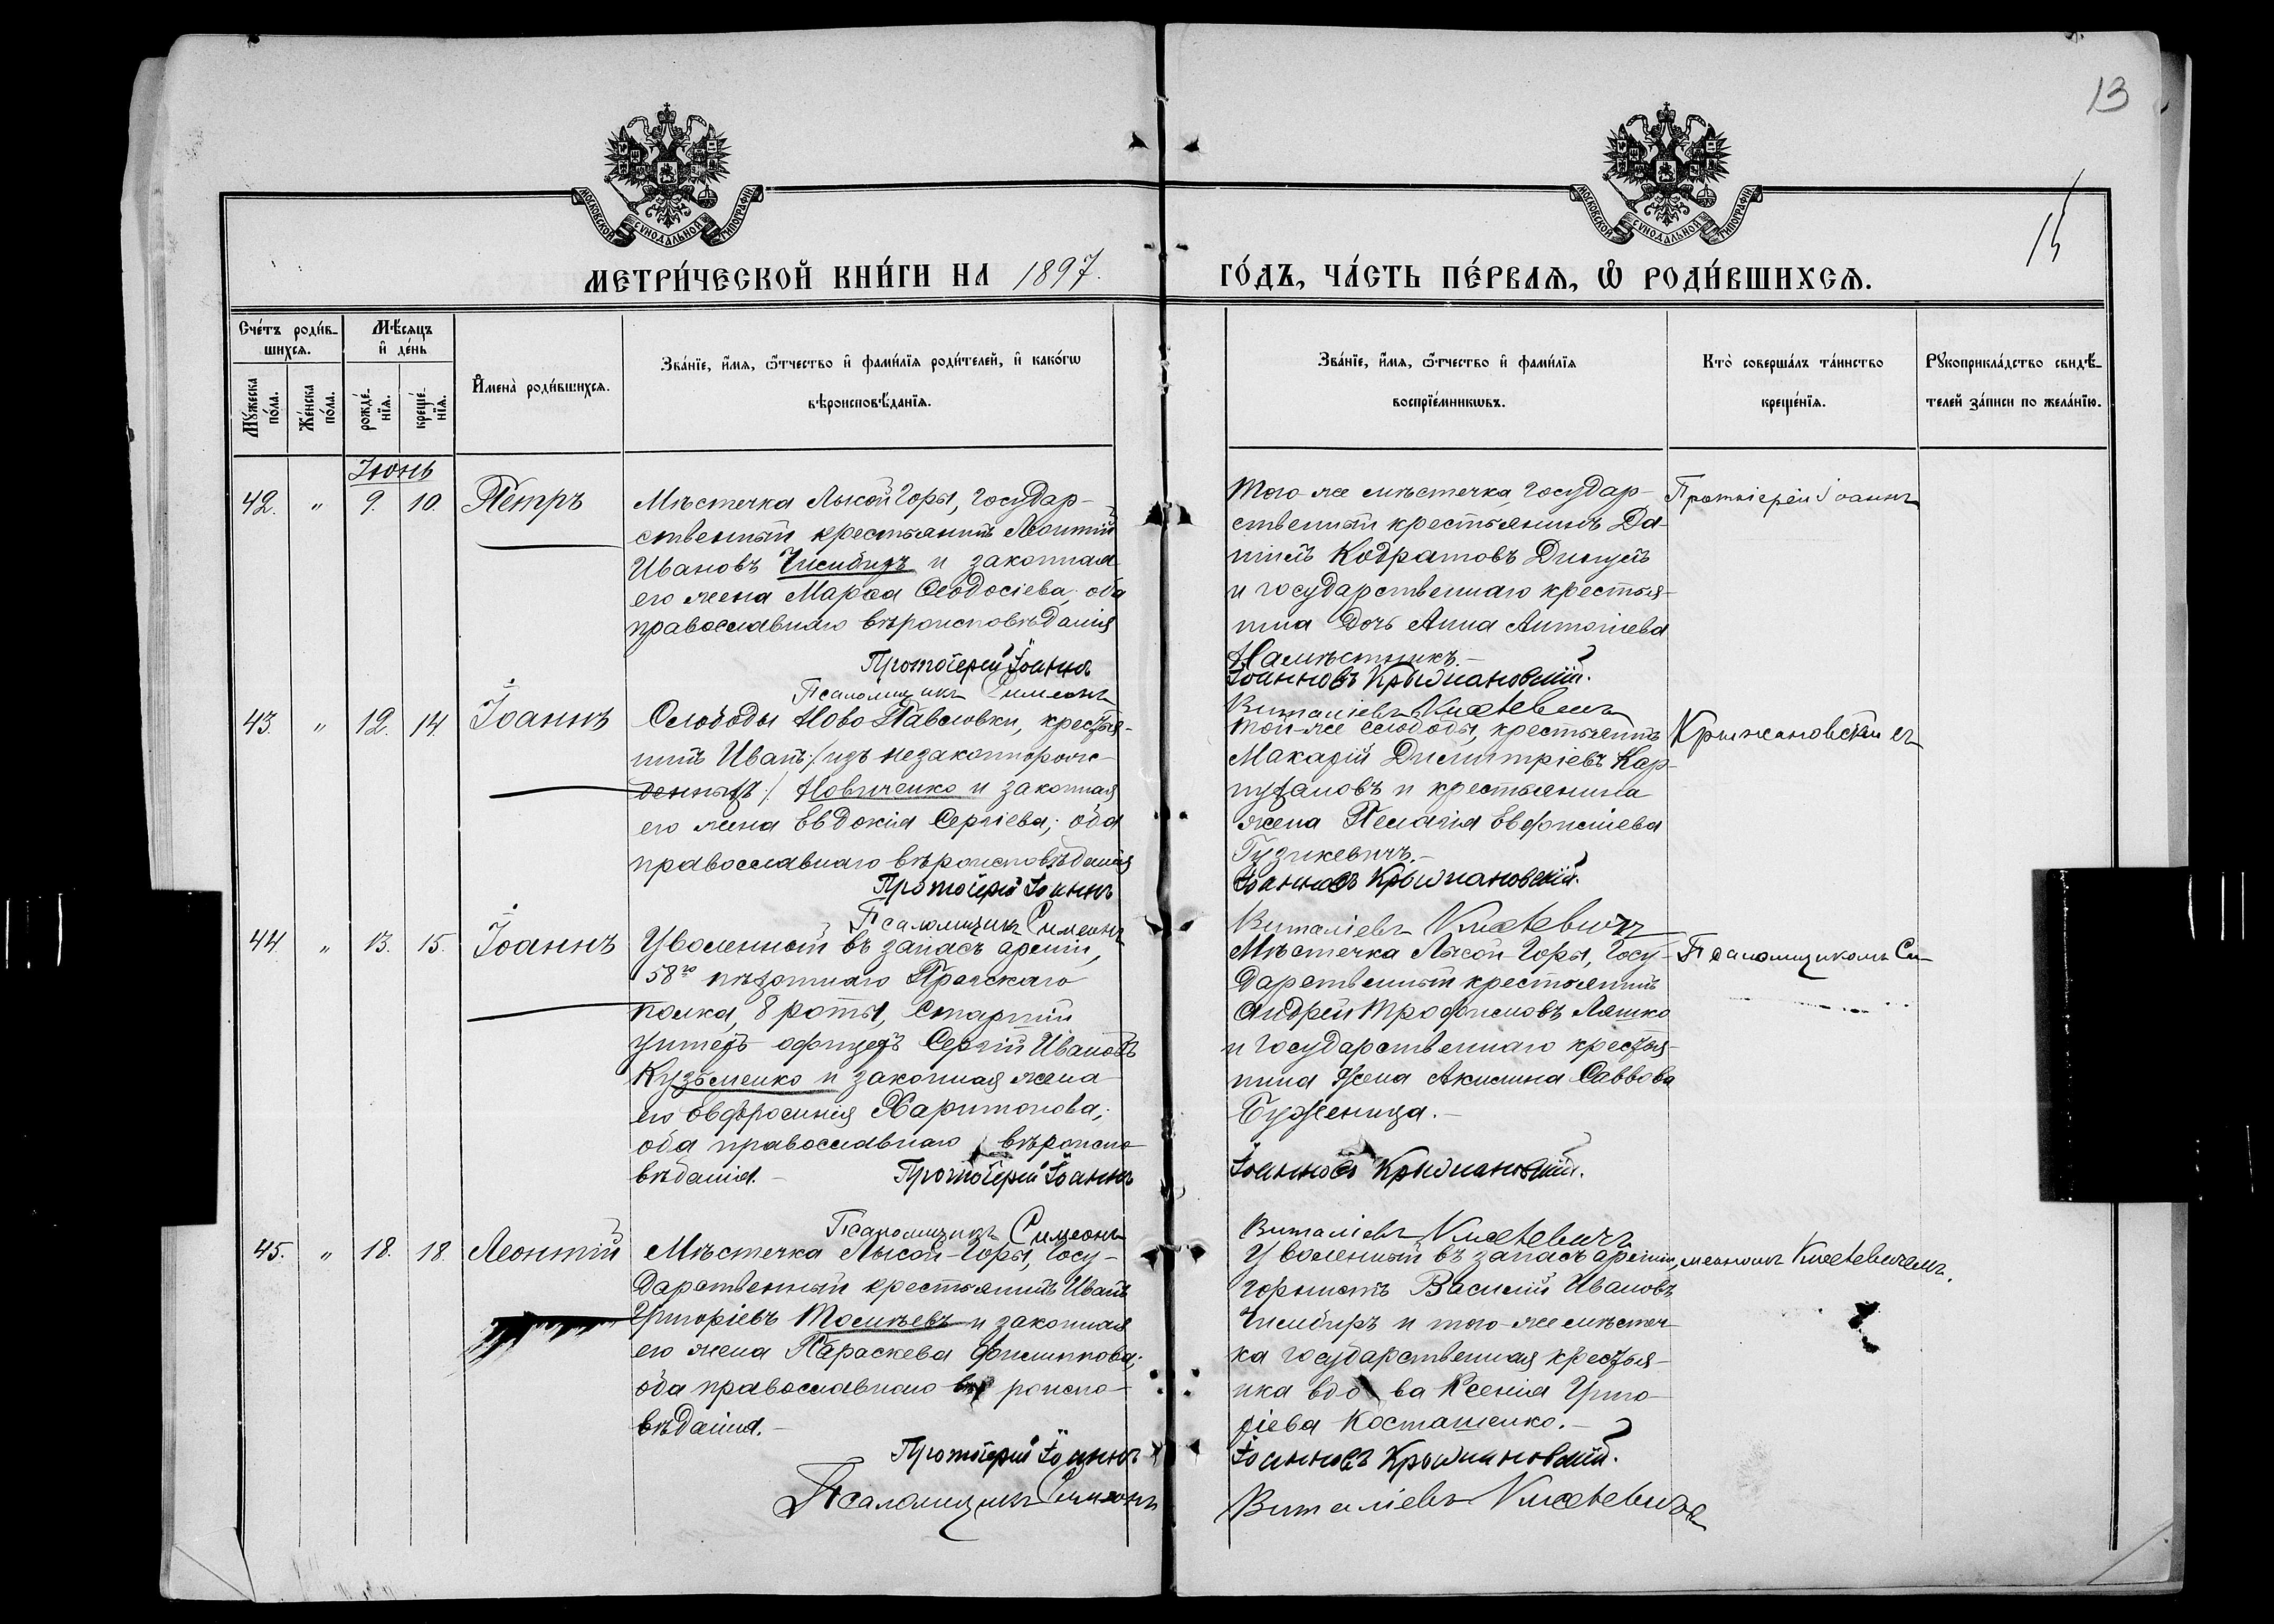 13
15
МОСКОВСКОЙ СѴНОДАЛЬНОЙ ТИПОГРАФІИ
МОСКОВСКОЙ СѴНОДАЛЬНОЙ ТИПОГРАФІИ
МЕТРИ́ЧЕСКОЙ КНИ́ГИ НА 1897.
ГО́ДЪ, ЧА́СТЬ ПЕ́РВАѦ, Ѡ҆ РОДИ́ВШИХСѦ.
Сче́тъ роди́в-
шихсѧ.
Мѣ́сѧцъ
и҆ де́нь
Мꙋ́жеска по́ла.
Же́нска по́ла.
рожде́-нїѧ.
креще́-нїѧ.
И҆мена̀ роди́вшихсѧ.
Зва́нїе, и҆́мѧ, ѻ҆́тчество и҆ фами́лїѧ роди́телей, и҆ како́гѡ
вѣроисповѣ́данїѧ.
Зва́нїе, и҆́мѧ, ѻ҆́тчество и҆ фами́лїѧ
воспрїе́мникѡвъ.
Кто̀ соверша́лъ та́инство
креще́нїѧ.
Рꙋкоприкла́дство свидѣ́-
телей за́писи по жела́нїю.
Іюнь
42. " 9. 10. Петръ
Мѣстечка Лысой Горы, государ-
ственный крестьянинъ Леонтій
Ивановъ Чисибиръ и законная
его жена Марѳа Ѳеодосіева; оба
православнаго вѣроисповѣданія
Протоіерей Іоаннъ
Псаломщикъ Симеонъ
Того-же мѣстечка, государ-
ственный крестьянинъ Да-
ніилъ Кодратовъ
и государственнаго крестья-
нина дочь Анна Антоніева
Намѣстникъ.-
Іоанновъ Крыжановскій.
Виталіевъ
Протоіерей Іоаннъ
43. " 12. 14. Іоаннъ
Слободы Ново Павловки, крестья-
нинъ Иванъ /изъ незаконнорож-
денныхъ/ Новиченко и законная
его жена Евдокія Сергіева; оба
православнаго вѣроисповѣданія
Протоіерей Іоаннъ
Псаломщикъ Симеонъ
Той-же слободы, крестьянинъ
Макарій Димитріевъ Кар-
и крестьянина
жена Пелагія Евфиміева
Гузикевичъ.-
Іоанновъ Крыжановскій.
Виталіевъ
Крыжановскій съ
44. " 13. 15. Іоаннъ
Уволенный въ запасъ арміи,
58го пѣхотнаго Пражскаго
полка, 8 роты, старшій
унтеръ офицеръ Сергій Ивановъ
Кузьменко и законная жена
его Евфросинія Харитонова;
оба православнаго вѣроиспо-
вѣданія.- Протоіерей Іоаннъ
Псаломщикъ Симеонъ
Мѣстечка Лысой-Горы, Госу-
дарственный крестьянинъ
Андрей Трофимовъ Ляшко
и государственнаго крестья-
нина жена Акилина Саввова
Буженица.-
Іоанновъ Крыжановскій.
Виталіевъ
Псаломщикомъ Си-
45. " 18. 18. Леонтій
Мѣстечка Лысой-Горы, Госу-
дарственный крестьянинъ Иванъ
Григоріевъ и законная
его жена Параскева Филиппова;
оба православнаго вѣ роиспо-
вѣданія.-
Протоіерей Іоаннъ
Псаломщикъ Симеонъ
Уволенный въ запасъ арміи,
горнистъ Василій Ивановъ
Чисибиръ и того-же мѣстеч-
ка государственная крестья-
нка вдо ва Ксенія Григо-
ріева Косташенко.-
Іоанновъ Крыжановскій.
Виталіевъ
меономъ